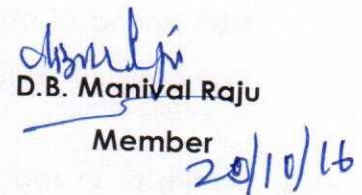 D.B. Manival Raju
Member
20/10/16